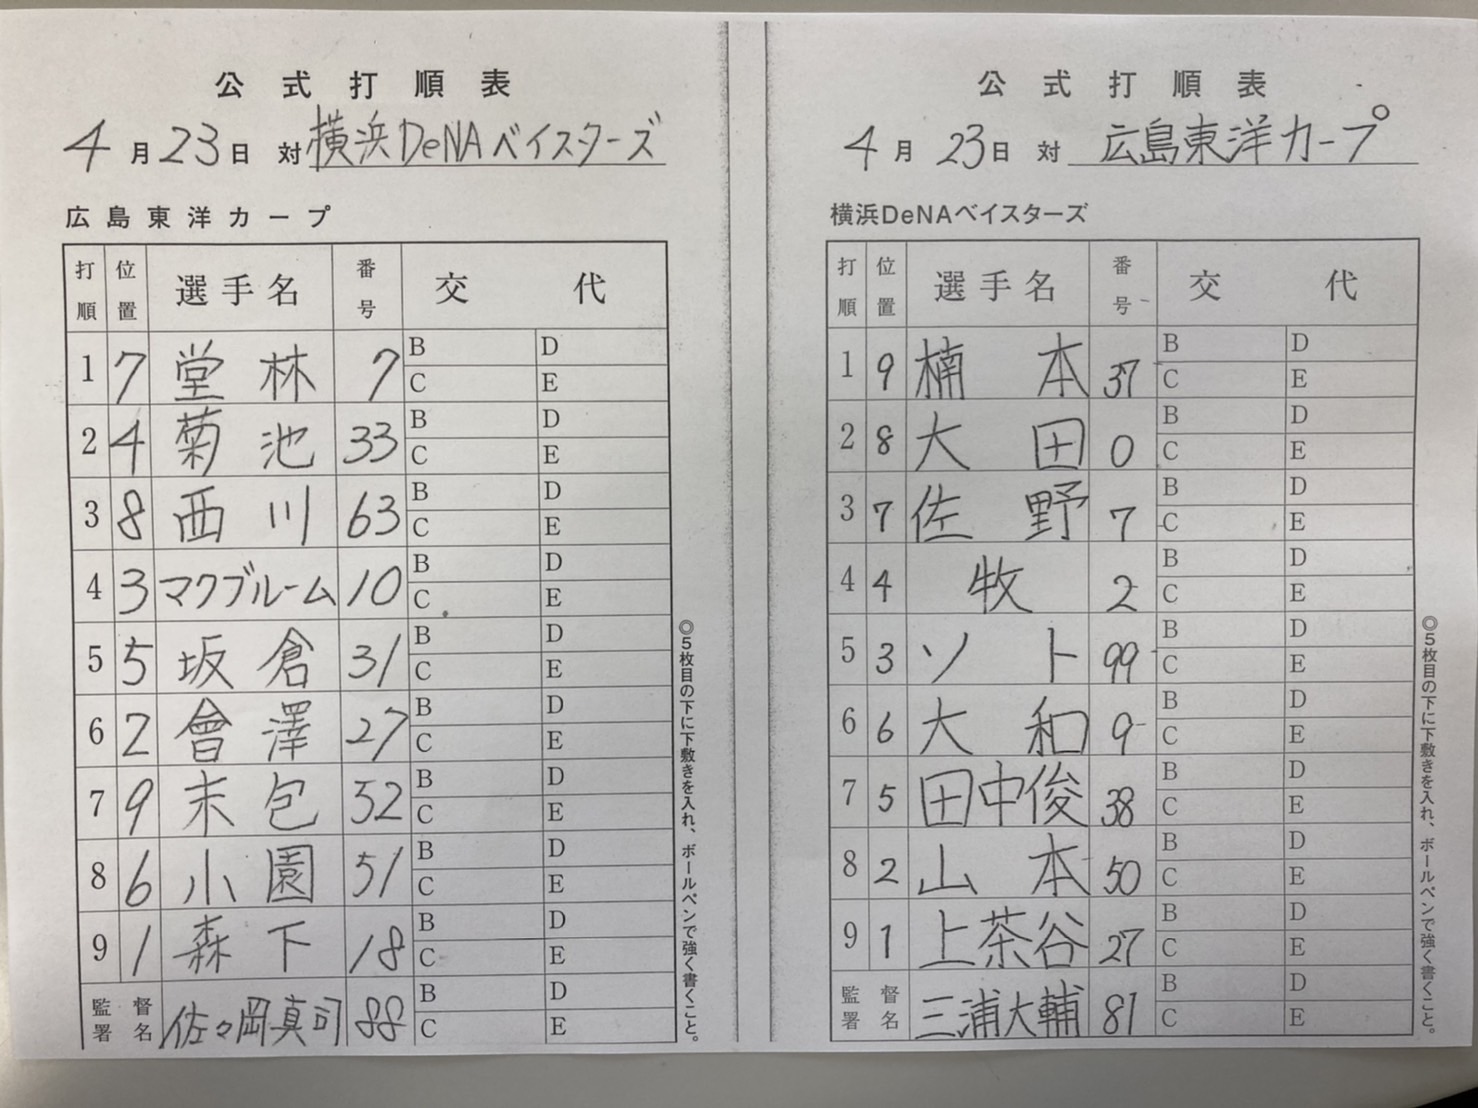 公式打順表
4月23日 対 横浜DeNAベイスターズ
広島東洋カープ
打順 位置 選手名 番号 交代
1 7 堂林 7 B D C E
2 4 菊池 33 B D C E
3 8 西川 63 B D C E
4 3 マクブルーム 10 B D C E
5 5 坂倉 31 B D C E
6 2 會澤 27 B D C E
7 9 末包 52 B D C E
8 6 小園 51 B D C E
9 1 森下 18 B D C E
監督署名 佐々岡真司 88 B D C E
◎5枚目の下に下敷きを入れ、ボールペンで強く書くこと。
公式打順表
4月23日 対 広島東洋カープ
横浜DeNAベイスターズ
打順 位置 選手名 番号 交代
1 9 楠本 37 B D C E
2 8 大田 0 B D C E
3 7 佐野 7 B D C E
4 4 牧 2 B D C E
5 3 ソト 99 B D C E
6 6 大和 9 B D C E
7 5 田中俊 38 B D C E
8 2 山本 50 B D C E
9 1 上茶谷 27 B D C E
監督署名 三浦大輔 81 B D C E
◎5枚目の下に下敷きを入れ、ボールペンで強く書くこと。